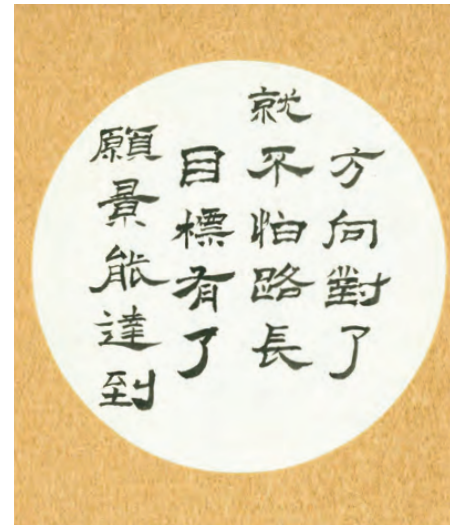 方向對了
就不怕路長
目標有了
願景能達到